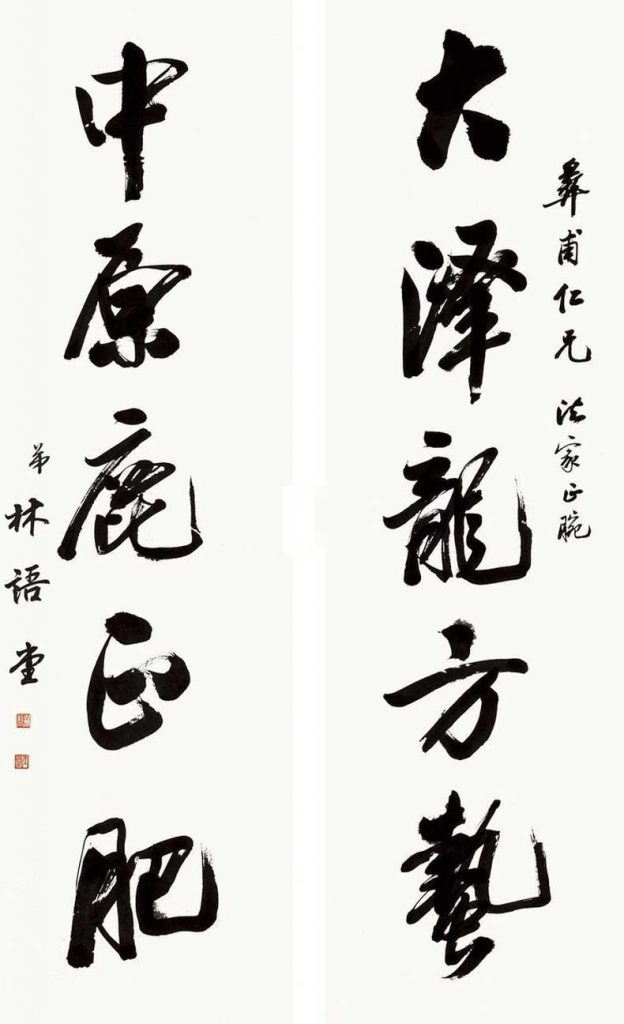 彝甫仁兄 法家正腕
大泽龍方蟄
中原鹿正肥
弟林語堂